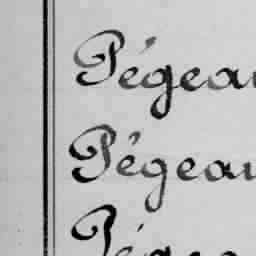 Pégeau
Pégeau
Pégeau